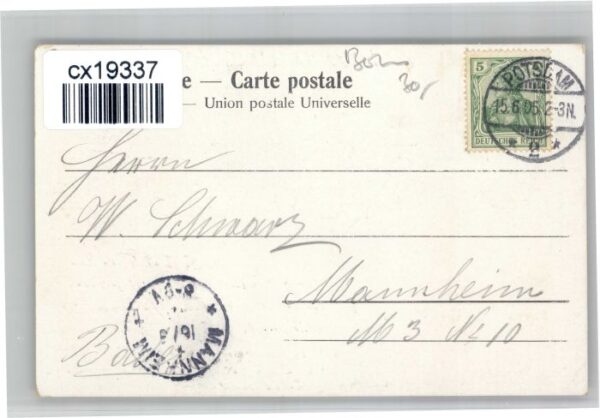 cx19337
e — Carte postale
— Union postale Universelle
5
DEUTSCHES REICH
POTSDAM
15.6.05.2-3N.
* 2 *
Herrn
W. Schwarz
Mannheim
M 3 No 10
MANNHEIM
16/6